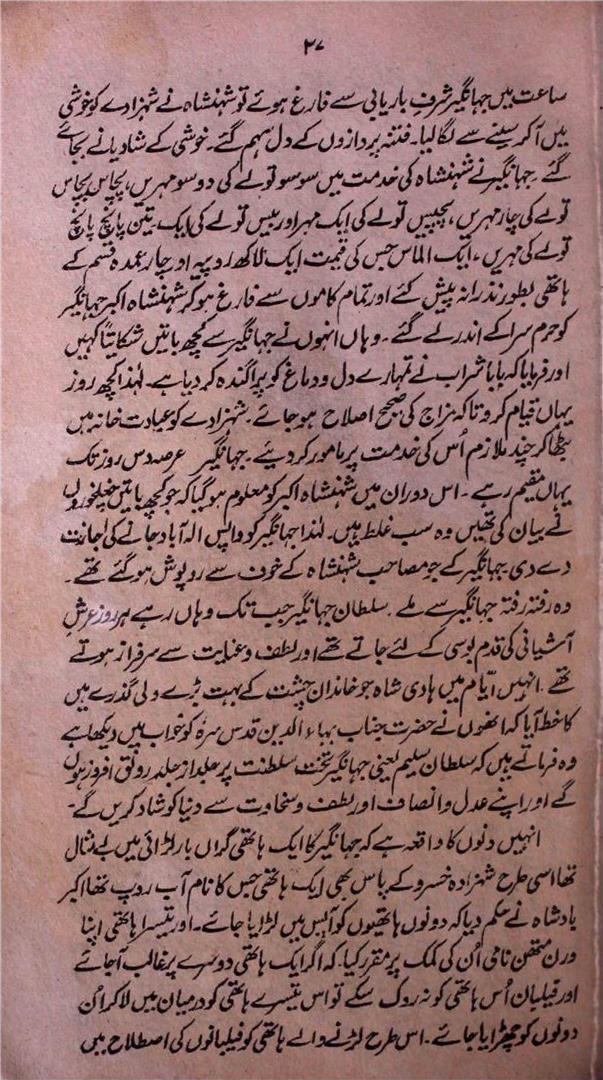 ۳۷
ساعت میں جہانگیر شرف باریابی سے فارغ ہوئے تو شہنشاہ نے شہزادے کو خوشی
میں آکر سینے سے لگا لیا۔ فتنہ پردازوں کے دل سہم گئے۔ خوشی کے شادیانے بجائے
گئے۔ جہانگیر نے شہنشاہ کی خدمت میں سو سو تولے کی دو سو مہریں، پچاس پچاس
تولے کی چار مہریں، پچیس تولے کی ایک مہر اور بیس تولے کی ایک۔ تین پانچ پانچ
تولے کی مہریں، ایک الماس جس کی قیمت ایک لاکھ روپیہ اور چار عمدہ قسم کے
ہاتھی بطور نذرانہ پیش کئے اور تمام کاموں سے فارغ ہو کر شہنشاہ اکبر جہانگیر
کو حرم سرا کے اندر لے گئے۔ وہاں انہوں نے جہانگیر سے کچھ باتیں شکایتاً کہیں
اور فرمایا کہ بابا شراب نے تمہارے دل و دماغ کو پراگندہ کر دیا ہے۔ لہٰذا کچھ روز
یہاں قیام کرو تاکہ مزاج کی صحیح اصلاح ہو جائے۔ شہزادے کو عبادت خانہ میں
بٹھا کر چند ملازم اُس کی خدمت پر مامور کر دیئے۔ جہانگیر عرصہ دس روز تک
یہاں مقیم رہے۔ اس دوران میں شہنشاہ اکبر کو معلوم ہو گیا کہ جو کچھ باتیں چغلخوروں
نے بیان کی تھیں وہ سب غلط ہیں۔ لہٰذا جہانگیر کو واپس الہ آباد جانے کی اجازت
دے دی جہانگیر کے جو مصاحب شہنشاہ کے خوف سے روپوش ہو گئے تھے۔
وہ رفتہ رفتہ جہانگیر سے ملے۔ سلطان جہانگیر جب تک وہاں رہے ہر روز عرش
آشیانی کی قدم بوسی کے لئے جاتے تھے اور لطف و عنایت سے سرفراز ہوتے
تھے۔ انہیں ایّام میں ہادی شاہ جو خاندان چشت کے بہت بڑے ولی گذرے ہیں
کا خط آیا کہ انھوں نے حضرت جناب بہاء الدین قدس سرہٗ کو خواب میں دیکھا ہے
وہ فرماتے ہیں کہ سلطان سلیم یعنی جہانگیر تخت سلطنت پر جلد از جلد رونق افروز ہوں
گے اور اپنے عدل و انصاف اور لطف و سخاوت سے دنیا کو شاد کریں گے۔
انہیں دنوں کا واقعہ ہے کہ جہانگیر کا ایک ہاتھی گراں بار لڑائی میں بے مثال
تھا اسی طرح شہزادہ خسرو کے پاس بھی ایک ہاتھی جس کا نام آب روپ تھا اکبر
بادشاہ نے حکم دیا کہ دونوں ہاتھیوں کو آپس میں لڑایا جائے۔ اور تیسرا ہاتھی اپنا
ورن متھن نامی اُن کی کمک پر مقرر کیا۔ کہ اگر ایک ہاتھی دوسرے پر غالب آجائے
اور فیلبان اُس ہاتھی کو نہ روک سکے تو اس تیسرے ہاتھی کو درمیان میں لا کر اُن
دونوں کو چھڑایا جائے۔ اس طرح لڑنے والے ہاتھی کو فیلبانوں کی اصطلاح میں